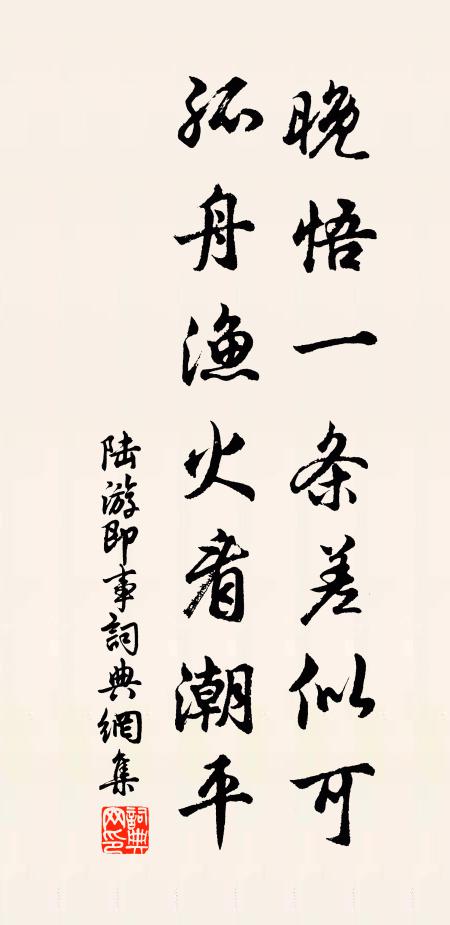 晚悟一条差似可
孤舟渔火看潮平
陆游即事詞典網集
詞典网印